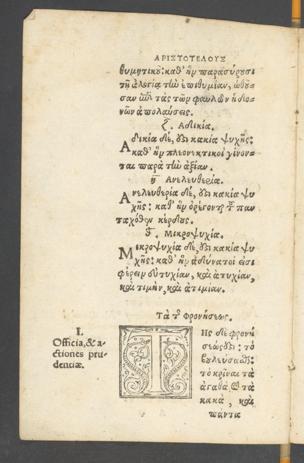 ΑΡΙΣΤΟΤΕΛΟΥΣ
θυμητικοῦ: καθ' ἣν παρασύρουσι
τῇ ἀλογίᾳ τὴν ἐπιθυμίαν, ὠθοῦ-
σαν ἐπὶ τὰς τῶν φαύλων ἡδο-
νῶν ἀπολαύσεις.
ζ. Ἀδικία.
Ἀδικία δέ, ἐστι κακία ψυχῆς:
καθ' ἣν πλεονεκτικοὶ γίνον-
ται παρὰ τὴν ἀξίαν.
η Ἀνελευθερία.
Ἀνελευθερία δέ, ἐστι κακία ψυ
χῆς: καθ' ἣν ὀρέγονται τοῦ παν
ταχόθεν κέρδους.
θ. Μικροψυχία.
Μικροψυχία δέ, ἐστι κακία ψυ
χῆς: καθ' ἣν ἀδύνατοί εἰσι
φέρειν εὐτυχίαν, καὶ ἀτυχίαν,
καὶ τιμὴν, καὶ ἀτιμίαν.
Τὰ τῆς φρονήσεως.
I.
Officia, & a-
ctiones pru-
dentiæ.
ΤΗς δὲ φρονή
σεώς ἐστι: τὸ
βουλεύσασθαι:
τὸ κρῖναι τὰ
ἀγαθὰ καὶ τὰ
κακά, καὶ
πάντα